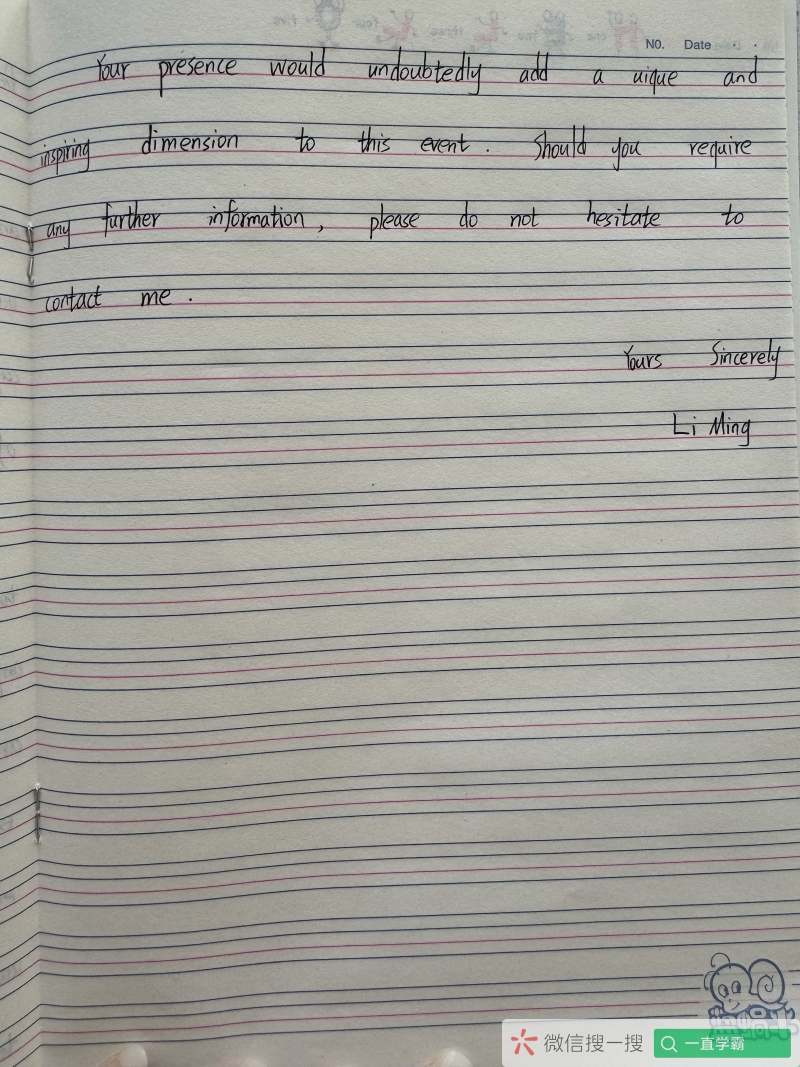 NO. Date
Your presence would undoubtedly add a uique and
inspiring dimension to this event. Should you require
any further information, please do not hesitate to
contact me.
Yours Sincerely
Li Ming
微信搜一搜
一直学霸